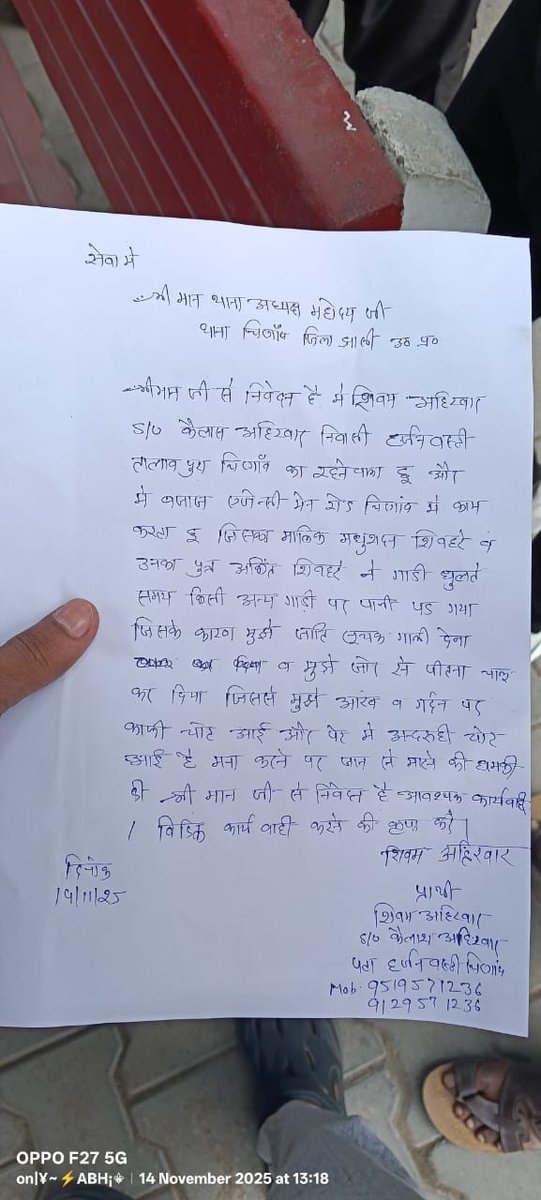 सेवा मे
श्री मान थाना अध्यक्ष महोदय जी
थाना चिरगाँव जिला झांसी उ० प्र०
श्रीमान जी से निवेदन है मे शिवम अहिरवार
S/O कैलास अहिरवार निवासी हरजिनवस्ती
तालाव पुरा चिरगाँव का रहने वाला हू और
मे बजाज एजेन्सी मेन रोड चिरगांव मे काम
करता हू जिसका मालिक मधुशदन शिवहरे व
उनका पुत्र अंकित शिवहरे ने गाडी धुलते
समय किसी अन्य गाडी पर पानी पड गया
जिसके कारण मुझे जाति सूचक गाली देना
व मुझे जोर से पीटना चालू
कर दिया जिससे मुझे आंख व गर्दन पर
काफी चोट आई और पेट मे अन्दरुही चोट
आई है मना करने पर जान से मारने की धमकी
दी श्री मान जी से निवेदन है आवश्यक कार्यवाही
कार्य वाही करने की कृपा करे।
शिवम अहिरवार
दिनांक
14/11/25
प्रार्थी
शिवम अहिरवार
S/O कैलाश अहिरवार
पता हरजिनवस्ती चिरगांव
Mob. 9519571236
9129571236
OPPO F27 5G
14 November 2025 at 13:18